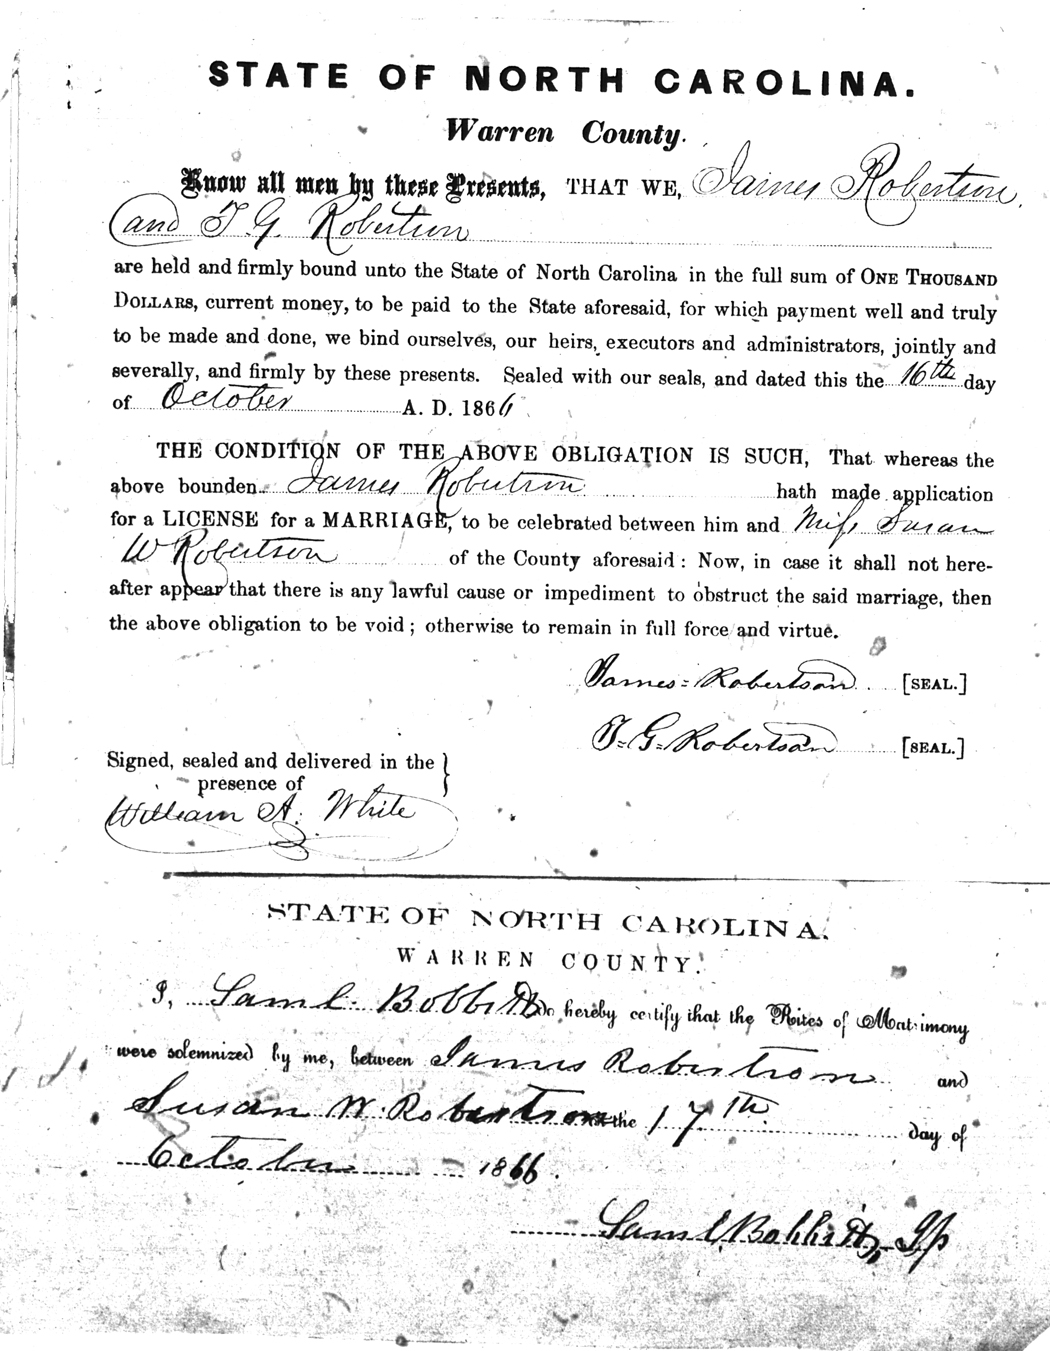 STATE OF NORTH CAROLINA.
Warren County.
Know all men by these Presents, THAT WE, James Robertson
and T. G. Robertson
are held and firmly bound unto the State of North Carolina in the full sum of ONE THOUSAND
DOLLARS, current money, to be paid to the State aforesaid, for which payment well and truly
to be made and done, we bind ourselves, our heirs, executors and administrators, jointly and
severally, and firmly by these presents. Sealed with our seals, and dated this the 16th day
of October A. D. 1866
THE CONDITION OF THE ABOVE OBLIGATION IS SUCH, That whereas the
above bounden James Robertson hath made application
for a LICENSE for a MARRIAGE, to be celebrated between him and Miss Susan
W Robertson of the County aforesaid: Now, in case it shall not here-
after appear that there is any lawful cause or impediment to obstruct the said marriage, then
the above obligation to be void; otherwise to remain in full force and virtue.
James Robertson [SEAL.]
T. G. Robertson [SEAL.]
Signed, sealed and delivered in the
presence of
William A. White
STATE OF NORTH CAROLINA.
WARREN COUNTY.
I, Saml. Bobbitt do hereby certify that the Rites of Matrimony
were solemnized by me, between James Robertson and
Susan W. Robertson the 17th day of
October 1866.
Saml Bobbitt, Jp